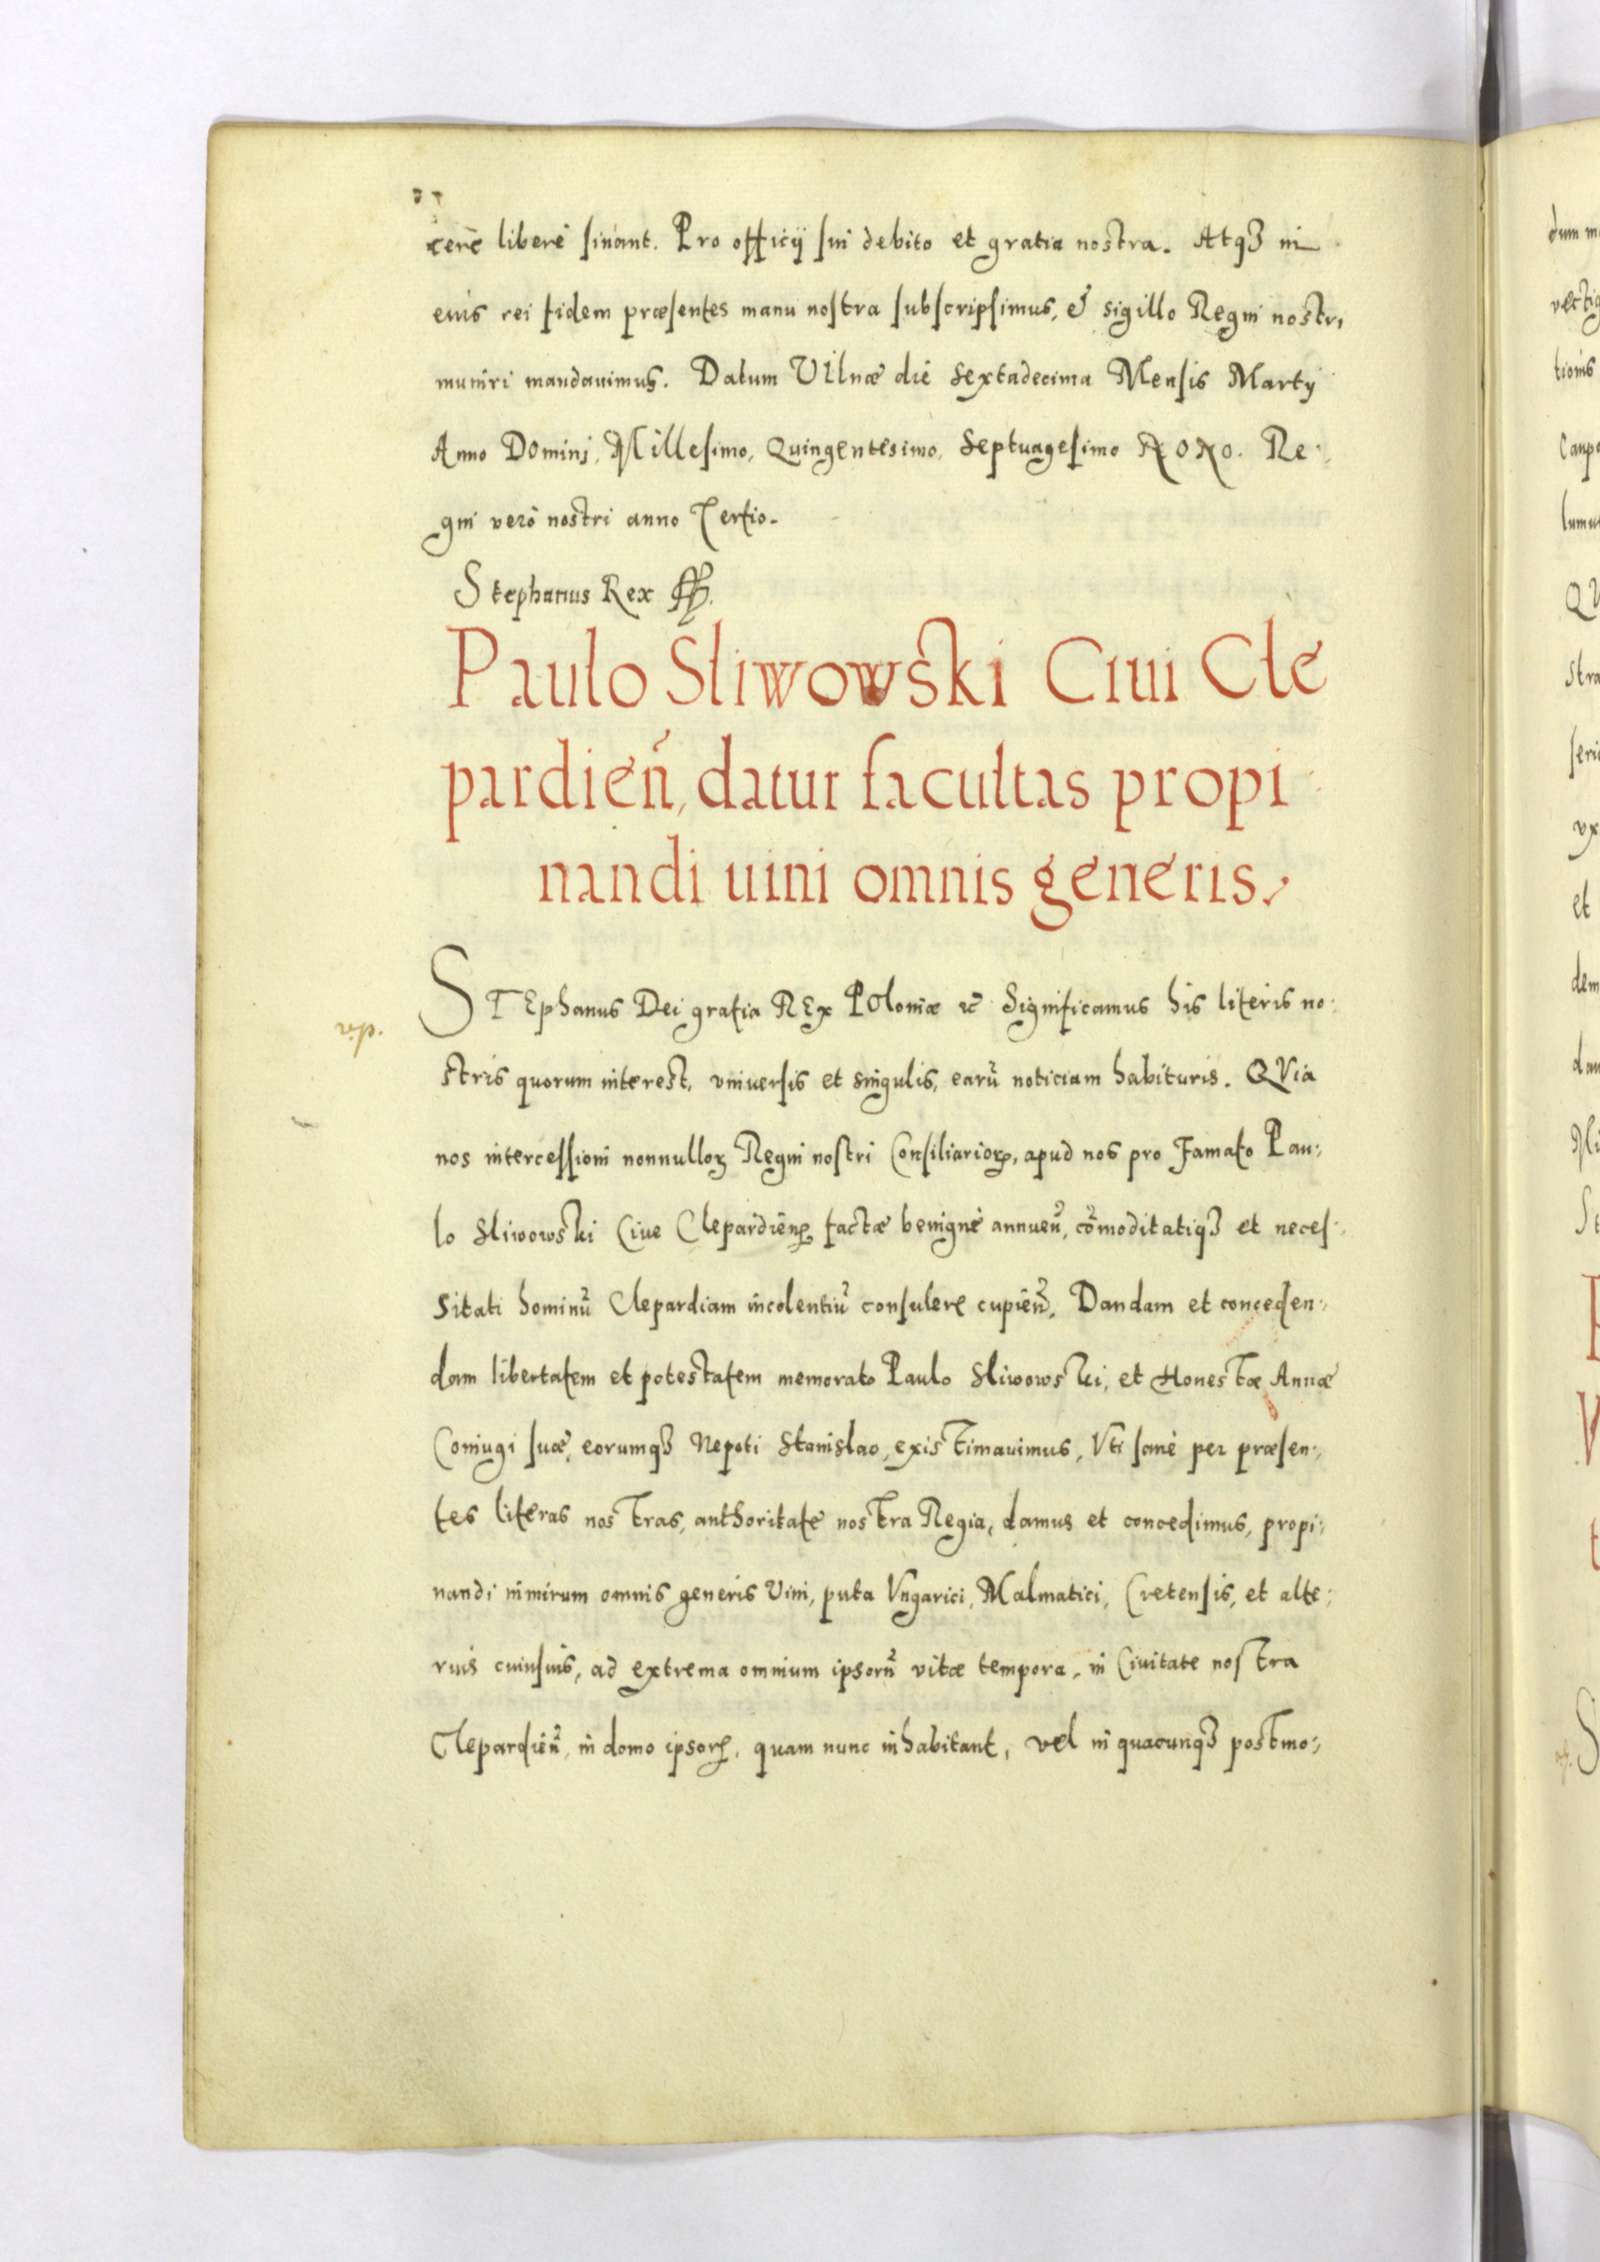 cere liberè sinant. Pro officij sui debito et gratia nostra. Atqȝ in
euis rei fidem præsentes manu nostra subscripsimus, & sigillo Regni nostri
muniri mandauimus. Datum Vilnæ die sextadecima Mensis Martij
Anno Domini, Millesimo, Quingentesimo, Septuagesimo Nono. Re:
gni verò nostri anno Tertio.
Stephanus Rex
Paulo Sliwowski Ciui Cle
pardieñ, datur facultas propi
nandi uini omnis generis.
STEphanus Dei gratia REx POloniæ ꝛc̃ Significamus his literis no:
stris quorum interest, vniuersis et singulis, earũ noticiam habituris. QVia
nos intercessioni nonnulloꝝ Regni nostri Consiliarioꝝ, apud nos pro Famato Pau:
lo Sliwowski Ciue Clepardieñ factæ benignè annueñ, cõmoditatiqȝ et neces:
sitati hominũ Clepardiam incolentiũ consulere cupieñ, Dandam et conceden:
dam libertatem et potestatem memorato Paulo Sliwowski, et Honestæ Annæ
Coniugi suæ, eorumqȝ Nepoti Stanislao, existimauimus, Vti sanè per præsen:
tes literas nostras, authoritate nostra Regia, damus et concedimus, propi:
nandi nimirum omnis generis Vini, puta Vngarici, Malmatici, Cretensis, et alte:
rius cuiusuis, ad extrema omnium ipsorũ vitæ tempora, in Ciuitate nostra
Clepardieñ, in domo ipsoꝝ, quam nunc inhabitant, vel in quacunqȝ postmo: